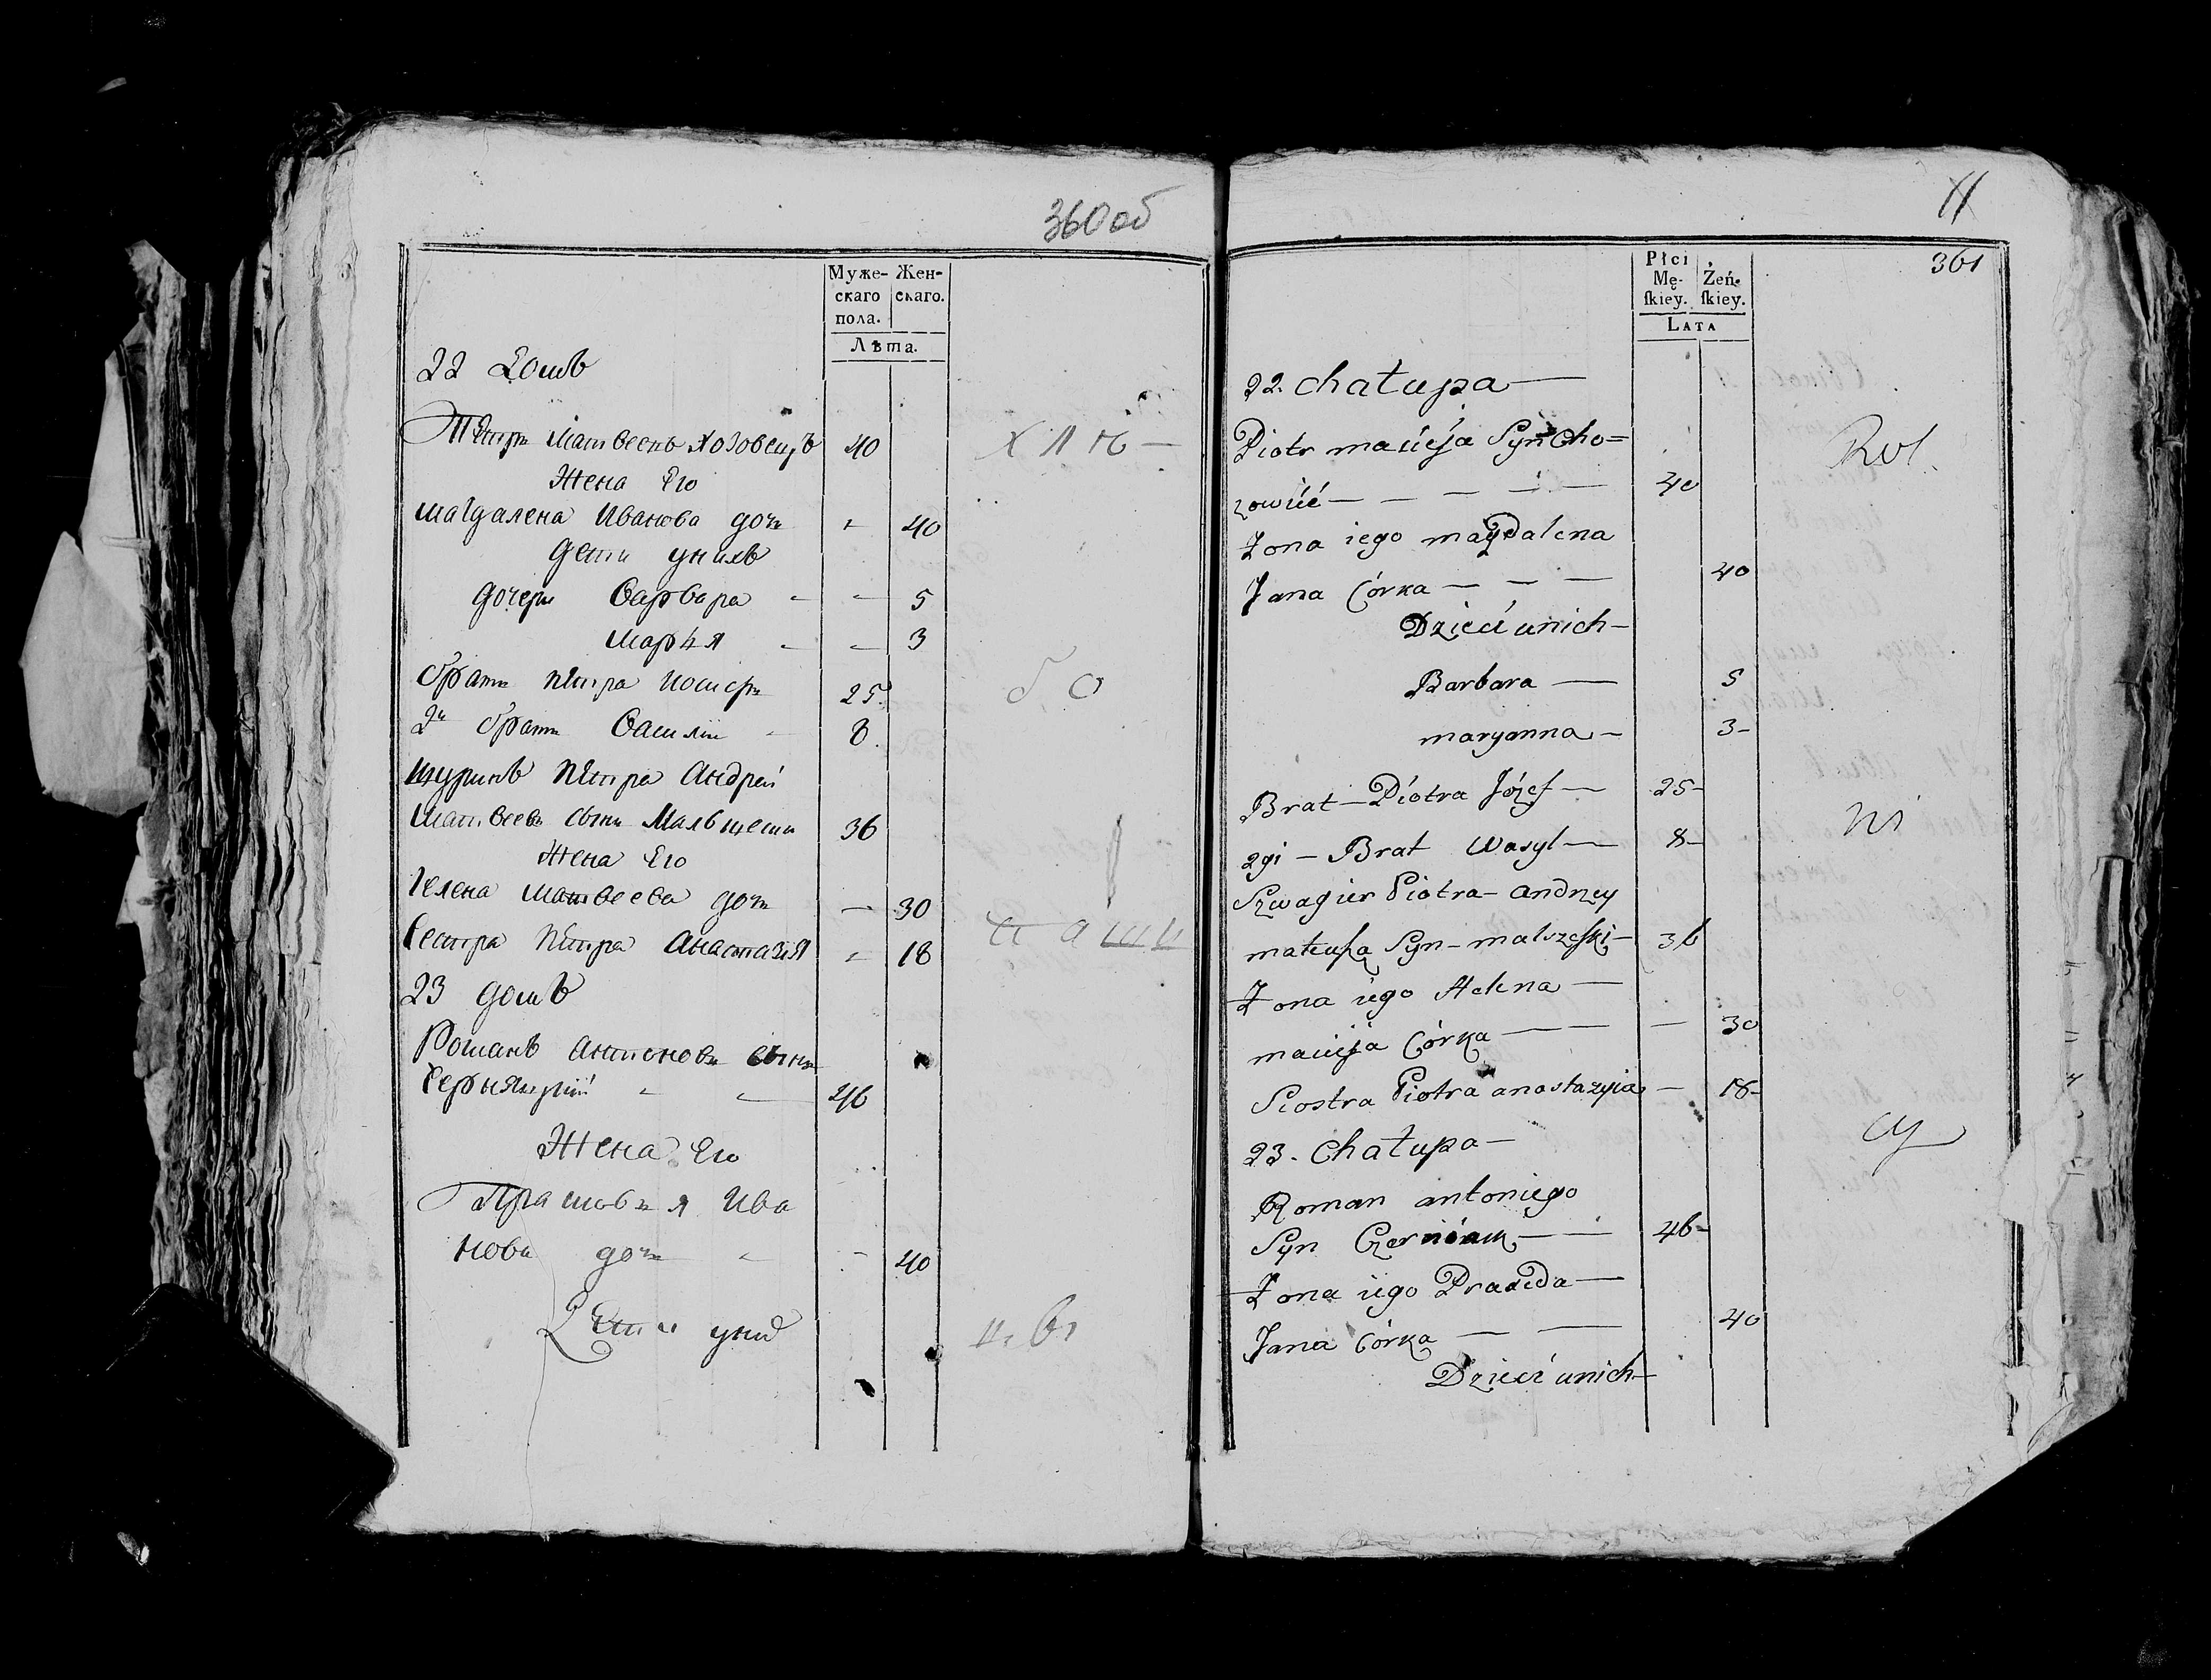 360 об
Муже- Жен-
скаго скаго.
пола.
Лѣта.
22 Домъ
Петръ Матвеевъ Хозовецъ 40
Жена Его
Магдалена Иванова дочь - 40
дети у нихъ
дочери Варвара - - 5
Марья - - 3
братъ Петра Иосифъ 25.
2й братъ Василий - 8.
шуринъ Петра Андрей
Матвеевъ сынъ Мальшески 36
Жена Его
Гелена Матвеева дочь — 30
Сестра Петра Анастазия - 18
23 домъ
Романъ Антоновъ сынъ
46
Жена Его
Ива
нова дочь - - 40
Дети у нихъ
хлѣ—
бо
паши
цы
11
361
Płci
Mę- Żeń-
skiey. skiey.
Lata
22. chałupa —
Piotr macieja Syn Cho=
zowiec — — — — — 40
Żona iego magdalena
Jana Córka — — — 40
Dzieci unich —
Barbara — 5
maryanna — 3-
Brat — Piotra Józef — 25-
2gi — Brat Wasyl — 8-
Szwagier Piotra — andrzey
mateusza Syn — malszeski — 36
Żona iego Helena —
macieja Córka — — — 30
Siostra Piotra anastazyia — 18-
23. Chałupa —
Roman antoniego
Syn — — 46-
Żona iego Praxeda —
Jana Córka — — 40
Dzieci unich —
Rol.
ni
cy